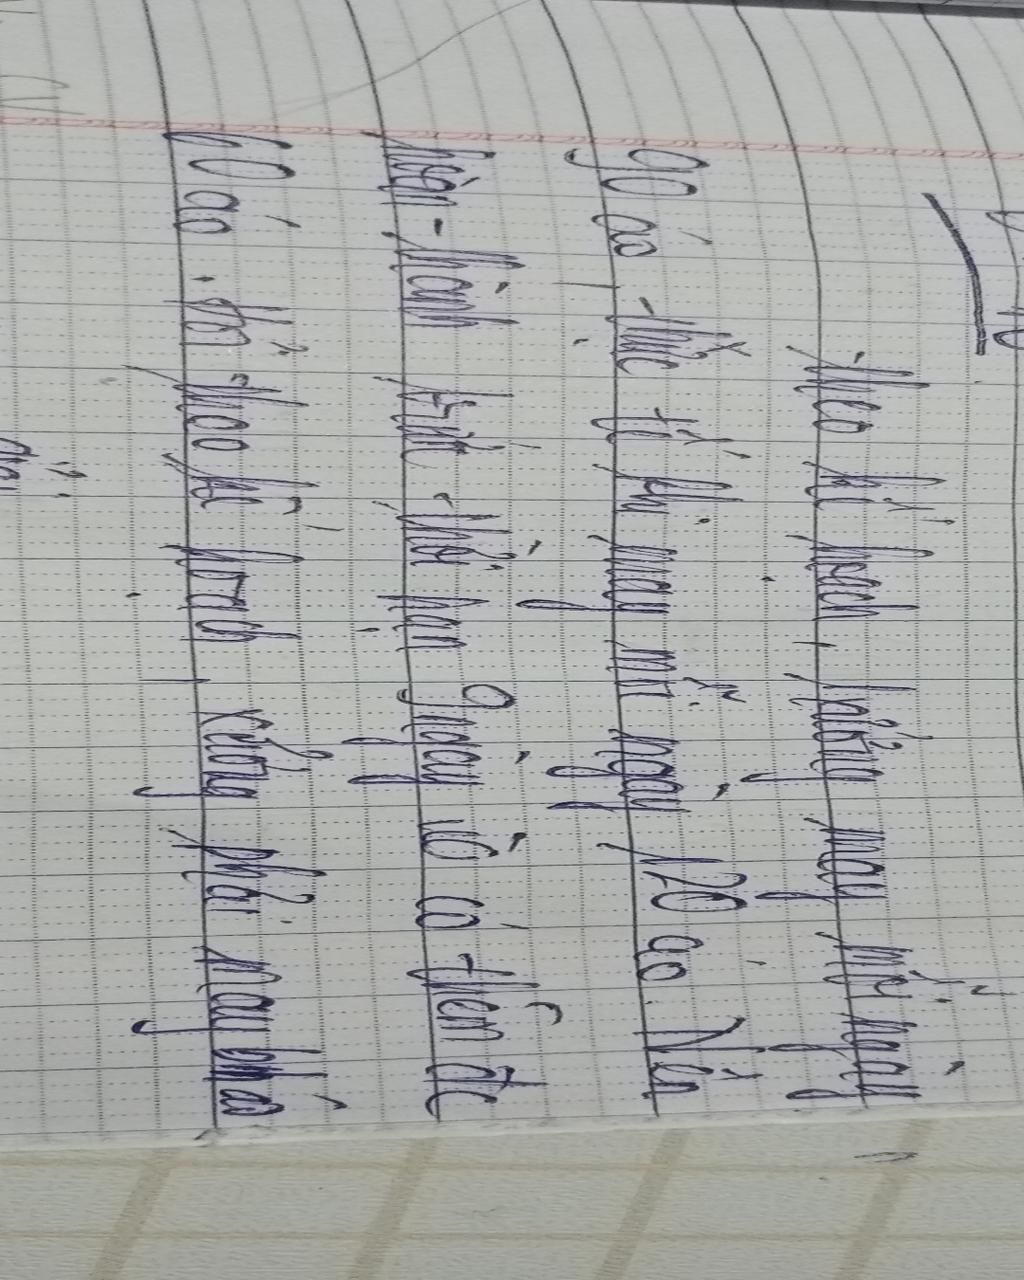 Theo kế hoạch, may mỗi ngày
90 áo. Thực tế khi may mỗi ngày 120 áo. Nên
hoàn thành trước thời hạn 9 ngày và có thêm đc
60 áo. Hỏi theo kế hoạch xưởng phải may